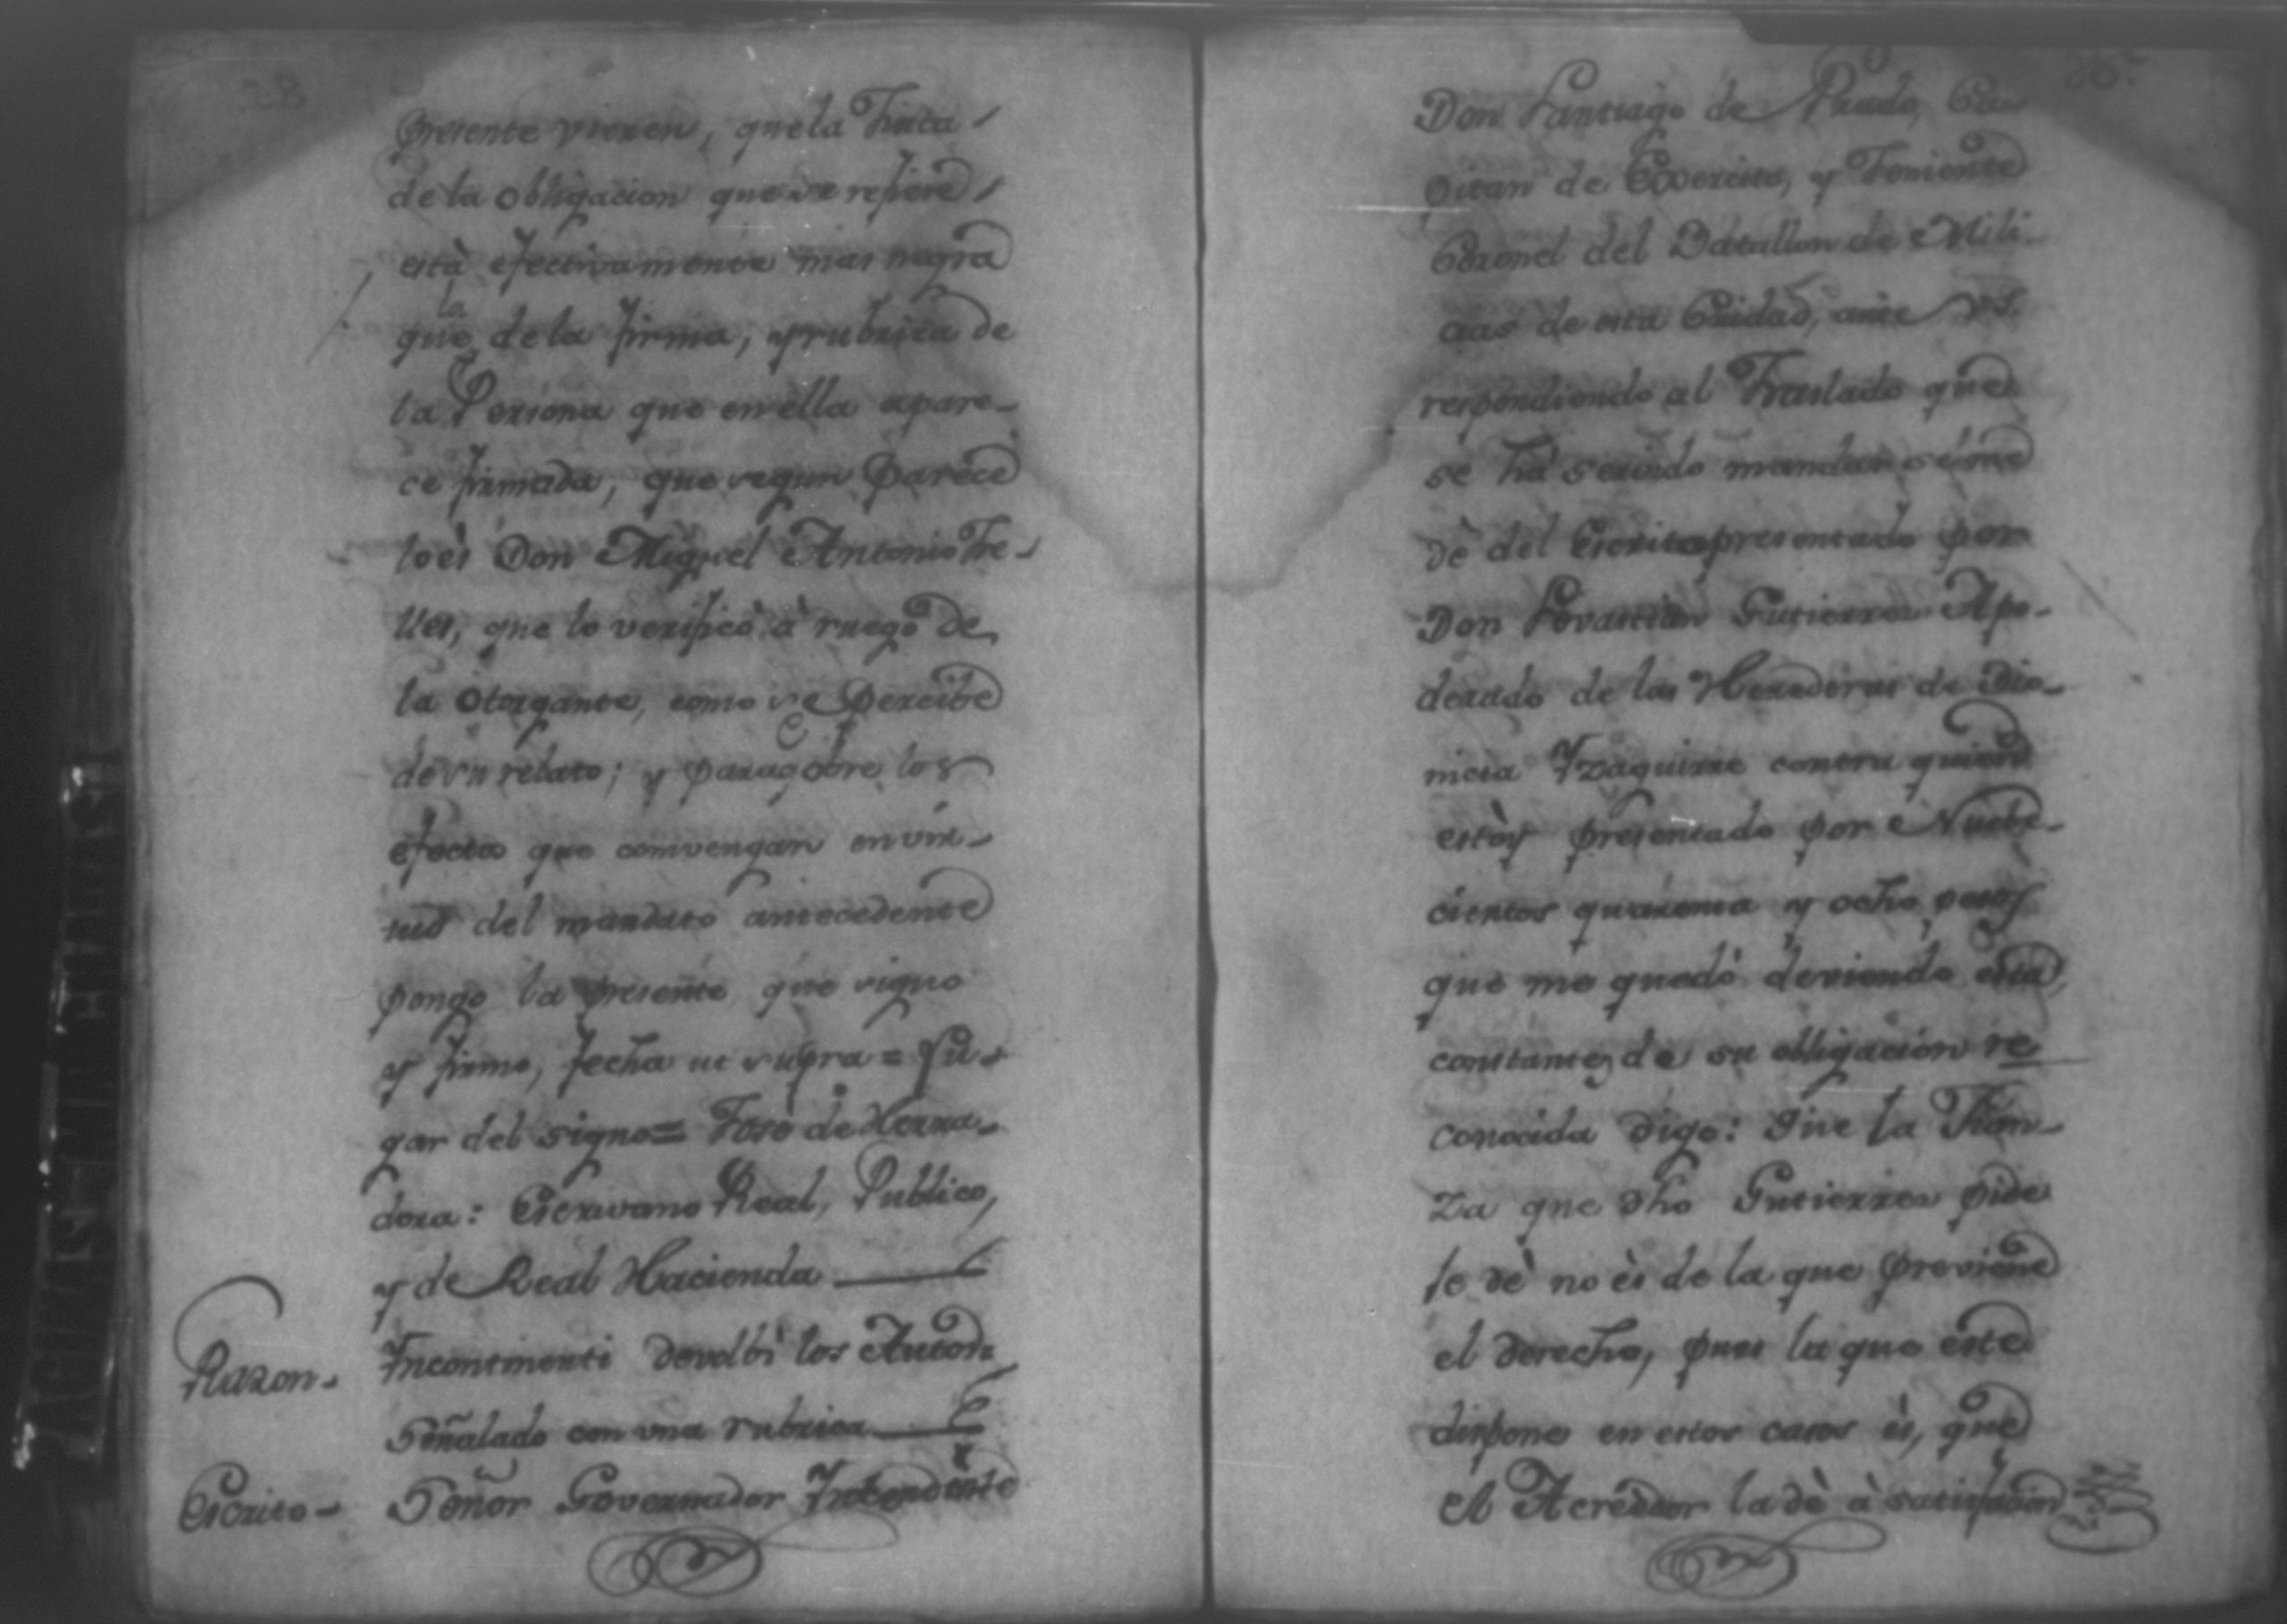 presente vieren, que la Tinta
de la obligacion que se refiere
està efectivamente mas negra
que la de la firma, y rubrica de
la Persona que en ella apare-
ce firmada, que segun parece
lo ès Don Miguel Antonio Tre-
lles, que lo verificò à ruego de
la otorgante, como se percibe
de su relato; y para q.e obre los
efectos que convengan en vir-
tud del mandato antecedente
pongo la presente que signo
y firmo, fecha ut supra = Lu-
gar del signo = José de Herra-
dora: Escrivano Real, Publico,
y de Real Hacienda
Razon. Yncontinenti devolbì los Autos:
Señalado con una rubrica
Escrito- Señor Governador Yntendente
Don Santiago de Prado, Ca-
pitan de Exercito, y Teniente
Coronel del Batallon de Mili-
cias de esta Ciudad, ante VS.
respondiendo al Traslado que
se há servido mandar se me
dè del Escrito presentado por
Don Sevastian Gutierrez Apo-
derado de las Herederas de Dio-
nicia Yzaguirre contra quien
estòy presentado por Nuebe-
cientos quarenta y ocho pesos
que me quedó deviendo esta,
constante de su obligacion re-
conocida digo: Que la Fian-
za que dho Gutierrez pide
le dè no ès de la que previene
el derecho, pues la que este
dispone en estos casos ès, que
el Acrehedor la dè à satisfacion